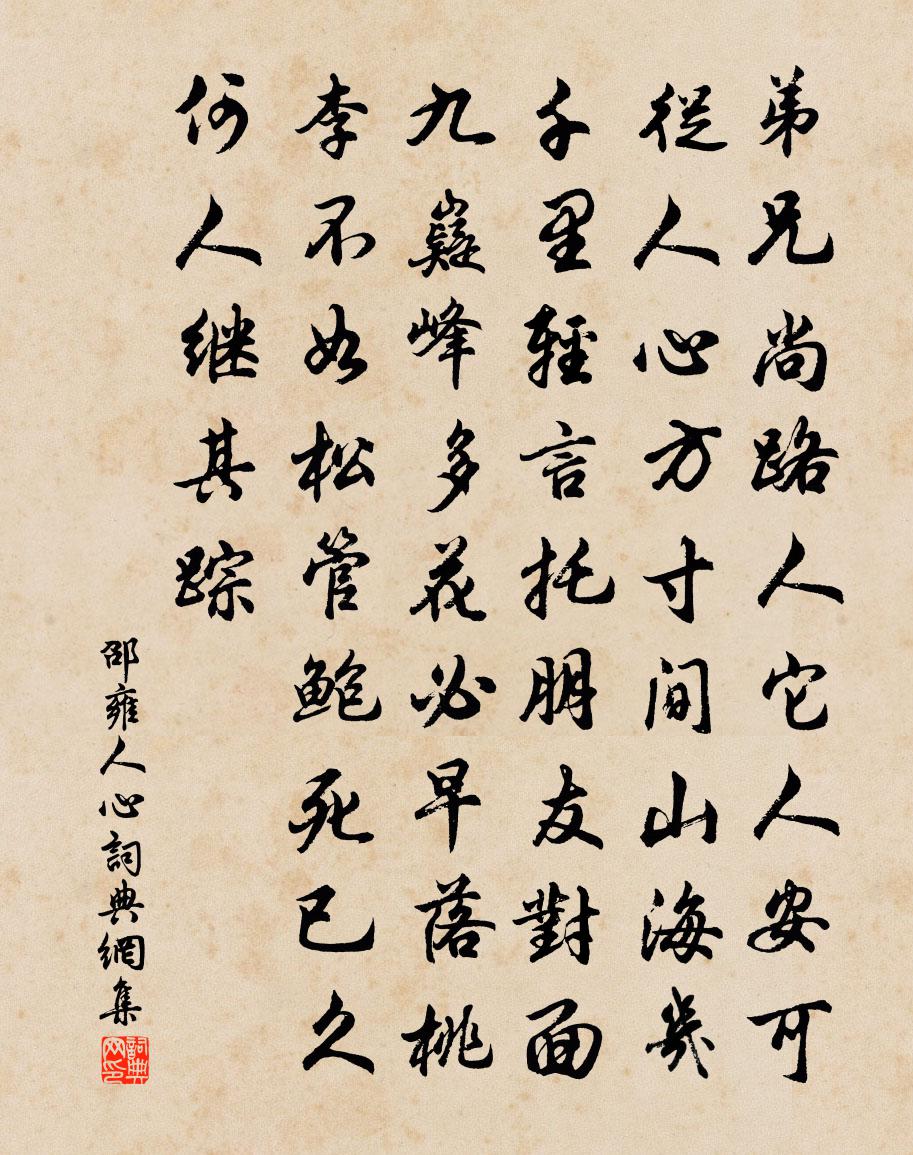 弟兄尚路人它人安可
從人心方寸間山海幾
千里輕言托朋友對面
九嶷峰多花必早落桃
李不如松管鮑死已久
何人继其踪
邵雍人心詞典網集
詞典网印